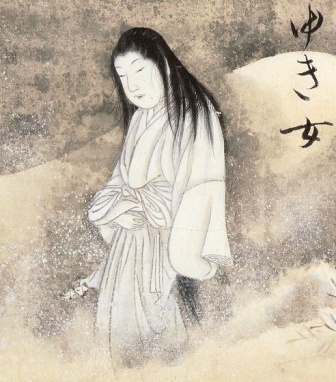 ゆき女